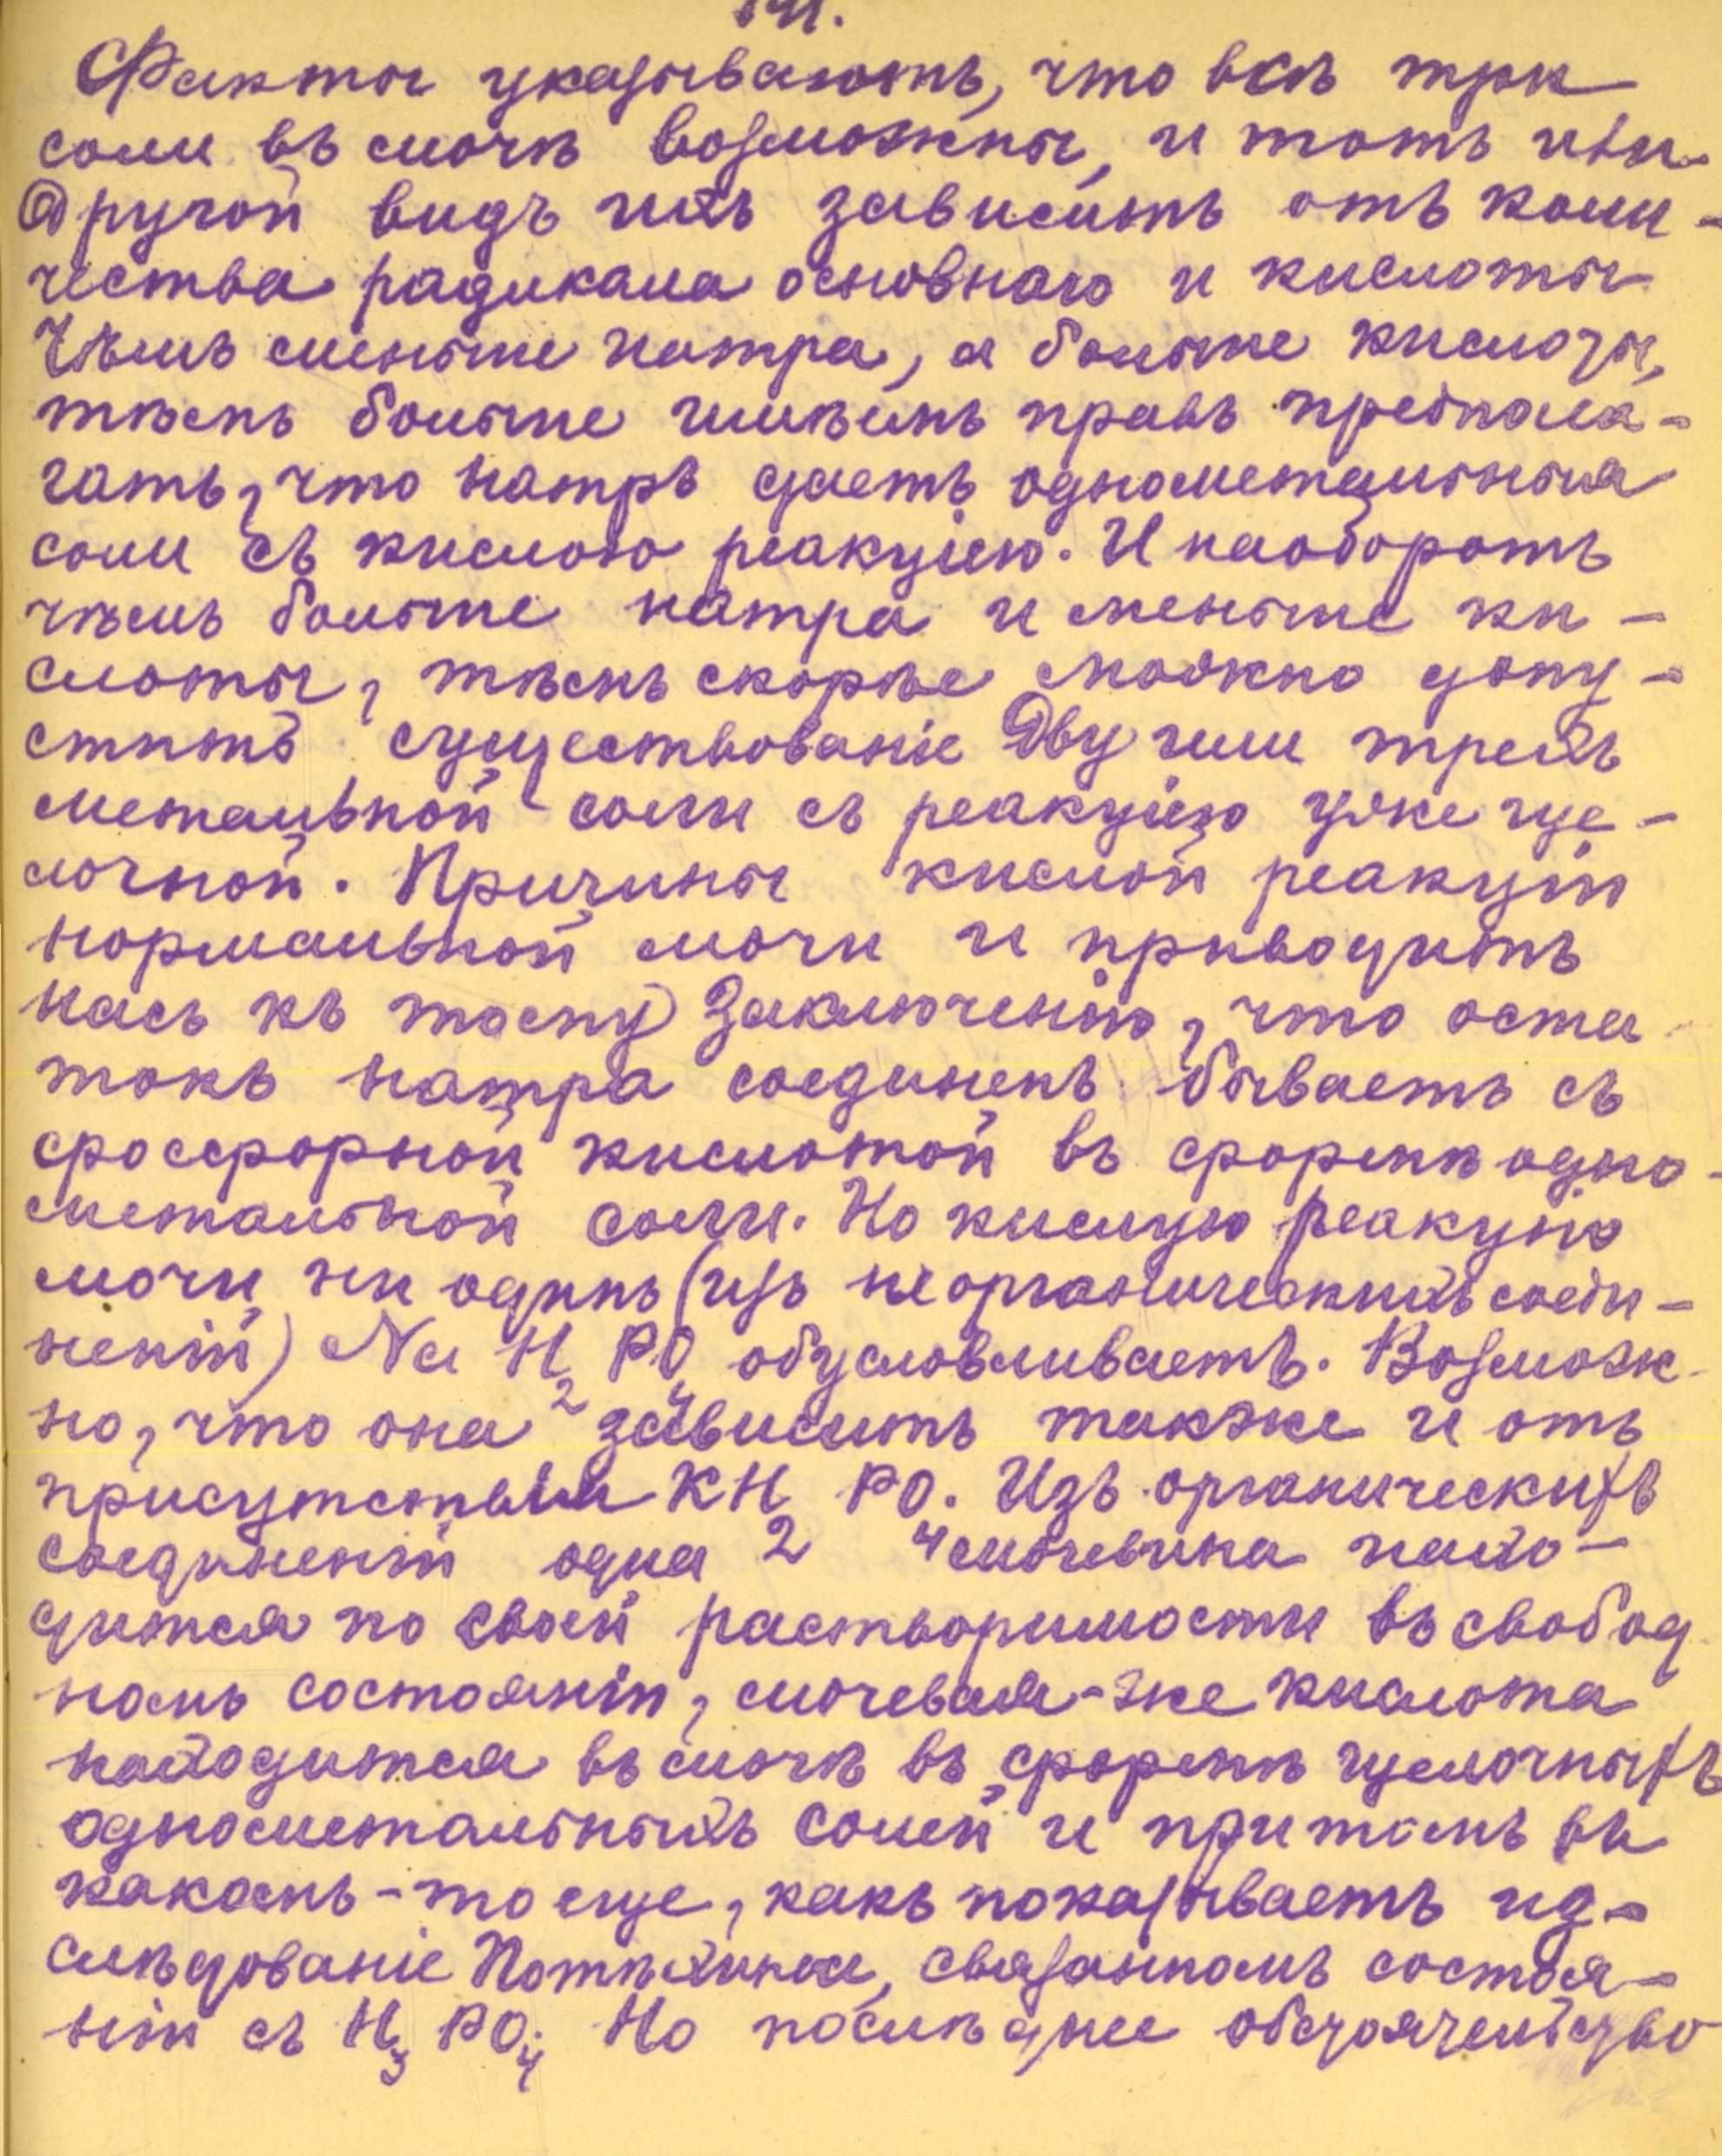 Факты указываютъ, что всѣ три
соли въ мочѣ возможны, и тотъ или
другой видъ ихъ зависитъ отъ коли-
чества радикала основнаго и кислоты
Чѣмъ меньше натра, а больше кислоты,
тѣмъ больше имѣемъ правъ предпола-
гать, что натръ даетъ однометальныя
соли съ кислою реакціею. И наоборотъ
чѣмъ больше натра и меньше ки-
слоты, тѣмъ скорѣе можно допу-
стить существованіе Дву или трехъ
метальной соли съ реакціею уже ще-
лочной. Причины кислой реакціи
нормальной мочи и приводитъ
насъ къ тому заключенію, что оста
токъ натра соединенъ бываетъ съ
фосфорной кислотой въ формѣ одно-
метальной соли. Но кислую реакцію
мочи не одинъ (изъ неорганическихъ соеди-
неній) Na H2 PO4 обусловливаетъ. Возмож
но, что она зависитъ также и отъ
присутствія KH2 PO4. Изъ органическихъ
соединеній одна мочевина нахо-
дится по своей растворимости въ свобод
номъ состояніи, мочевая-же кислота
находится въ мочѣ въ формѣ щелочныхъ
однометальныхъ солей и притомъ въ
какомъ-то еще, какъ показываетъ из-
слѣдованіе связанномъ состоя-
ніи съ H3 PO4. Но послѣднее обстоятельство